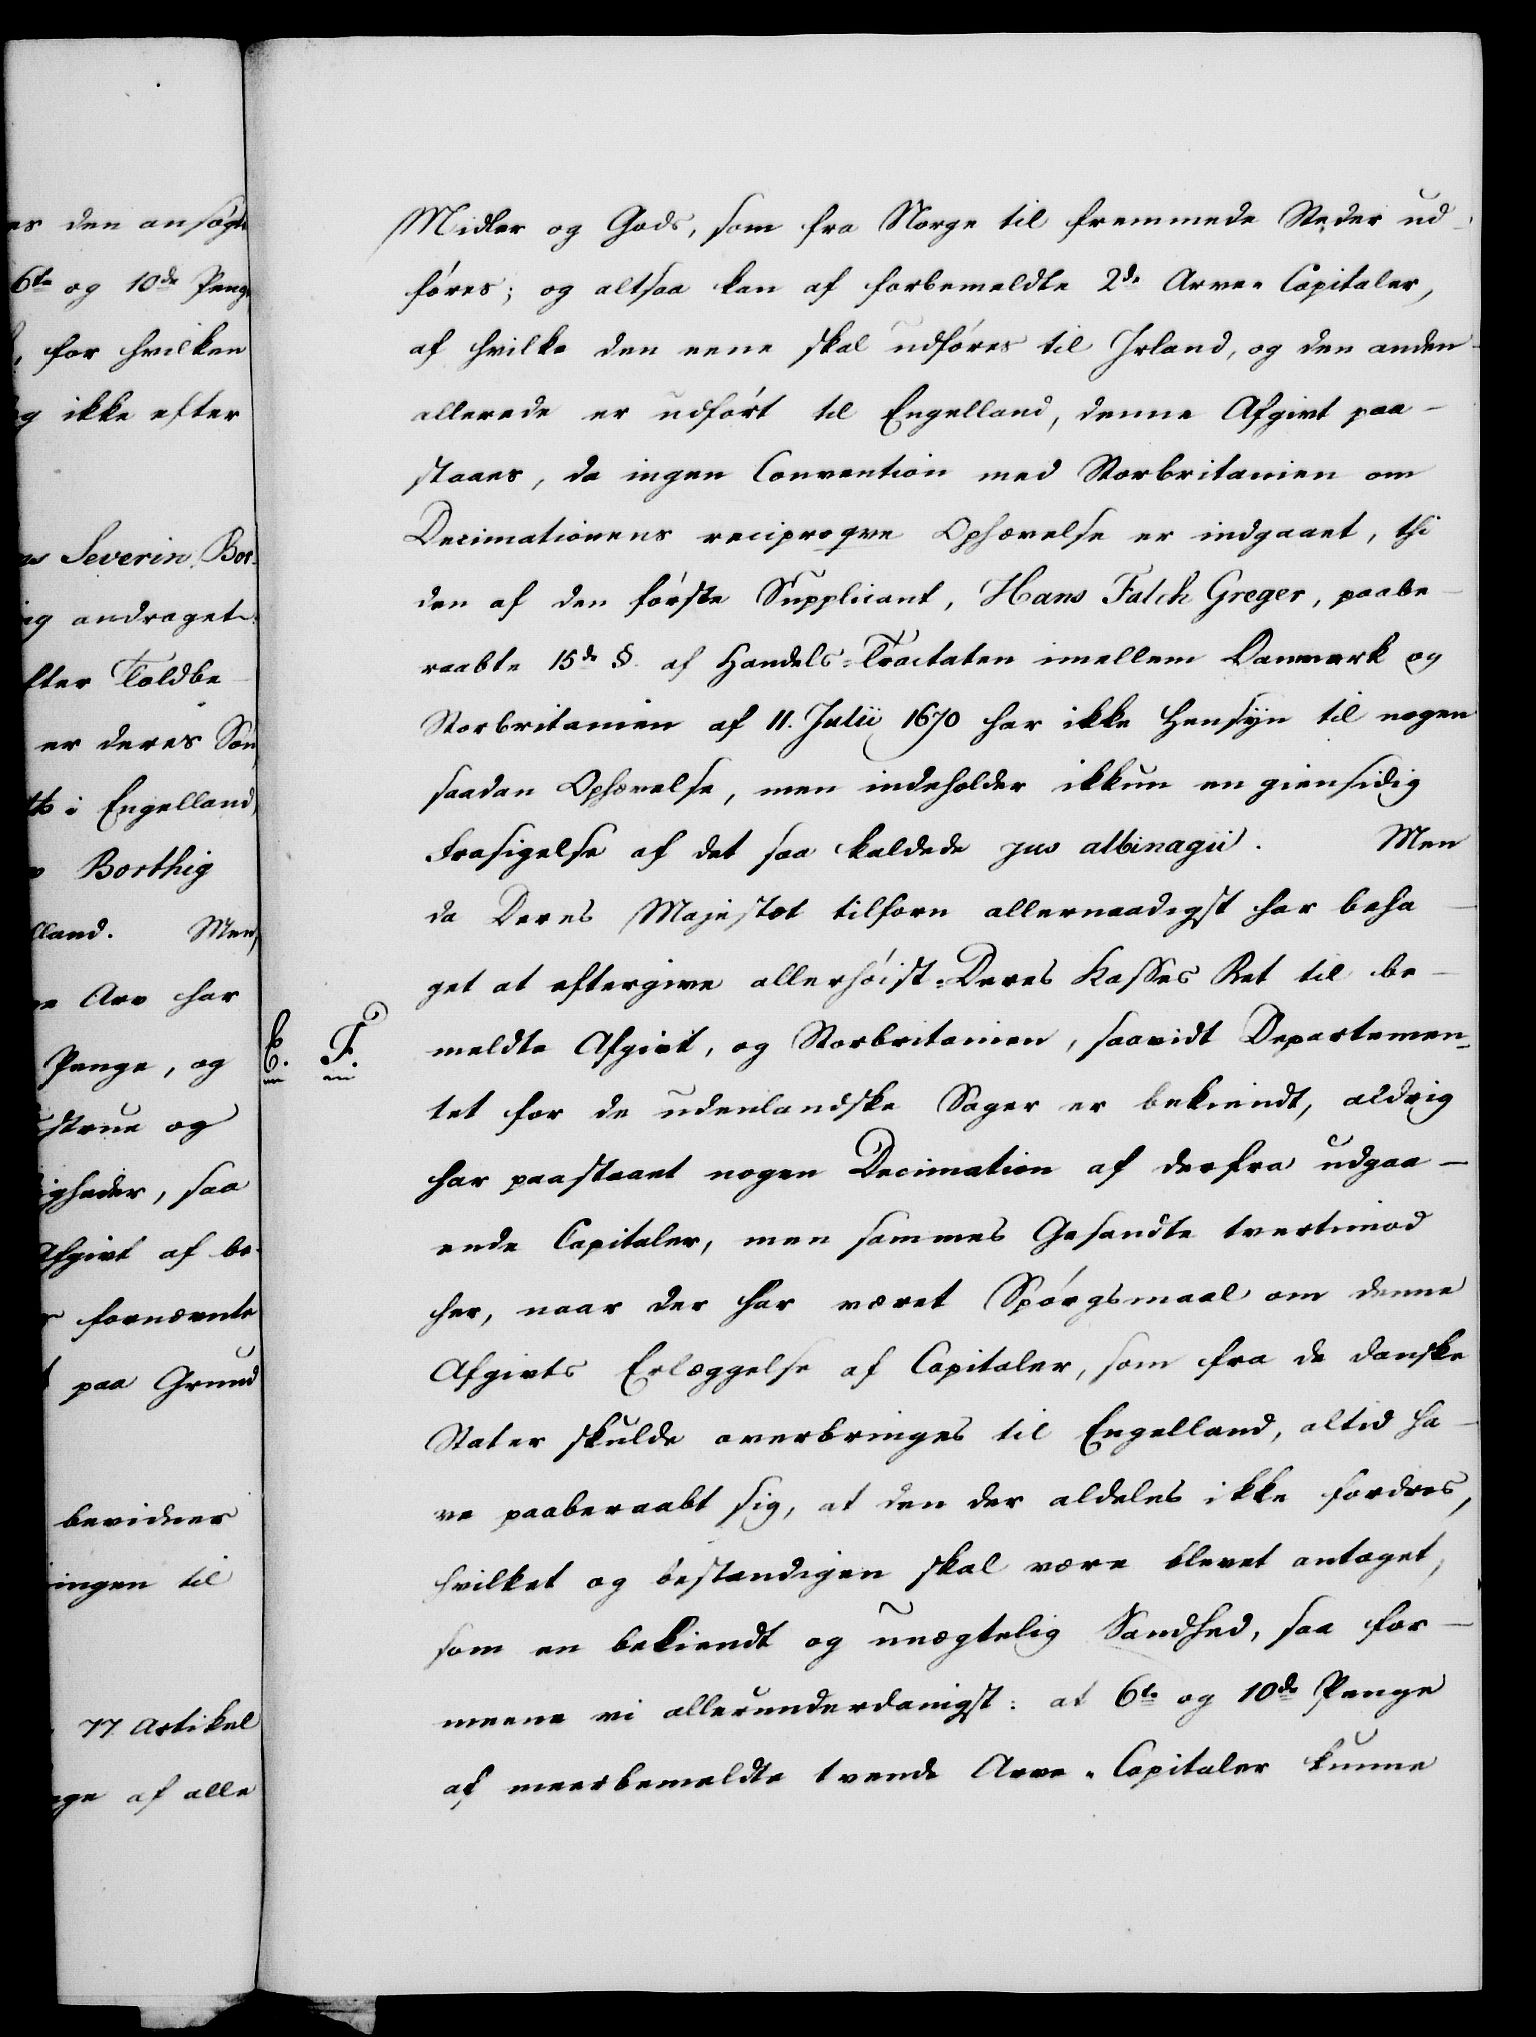 es den ansøgte
6te og 10de Penge
, for hvilken
og ikke efter
Severin Bor-
ig andraget
efter Toldbe
er deres Søn
i Engelland,
Borthig
lland. Men,
Arv har
Penge, og
ustrue og
igheder, saa
Afgivt af be-
fornævnte
paa Grund
bevidner
ingen til
77 Artikel
nge af alle
Midler og Gods, som fra Norge til fremmede Steder ud-
føres; og altsaa kan af forbemeldte 2de Arve-Capitaler,
af hvilke den eene skal udføres til Irland, og den anden
allerede er udført til Engelland, denne Afgivt paa-
staaes, da ingen Convention med Storbritanien om
Decimationens reciproqve Ophævelse er indgaaet, thi
den af den første Supplicant, Hans Falch Greger, paabe-
raabte 15de §. af Handels-Tractaten imellem Danmark og
Storbritanien af 11. Julii 1670 har ikke Hensyn til nogen
saadan Ophævelse, men indeholder ikkun en giensidig
Frasigelse af det saa kaldede jus albinagii. Men
da Deres Majestæt tilforn allernaadigst har beha-
get at eftergive allerhøist-Deres Kasses Ret til be-
E. F. meldte Afgivt, og Storbritanien, saavidt Departemen-
tet for de udenlandske Sager er bekiendt, aldrig
har paastaaet nogen Decimation af derfra udgaa-
ende Capitaler, men sammes Gesandte tvertimod
her, naar der har været Spørgsmaal om denne
Afgivts Erlæggelse af Capitaler, som fra de danske
Stater skulde overbringes til Engelland, altid ha-
ve paaberaabt sig, at den der aldeles ikke fordres,
hvilket og bestandigen skal være blevet antaget,
som en bekiendt og unægtelig Sandhed, saa for-
meene vi allerunderdanigst: at 6te og 10de Penge
af meerbemeldte tvende Arve-Capitaler kunne